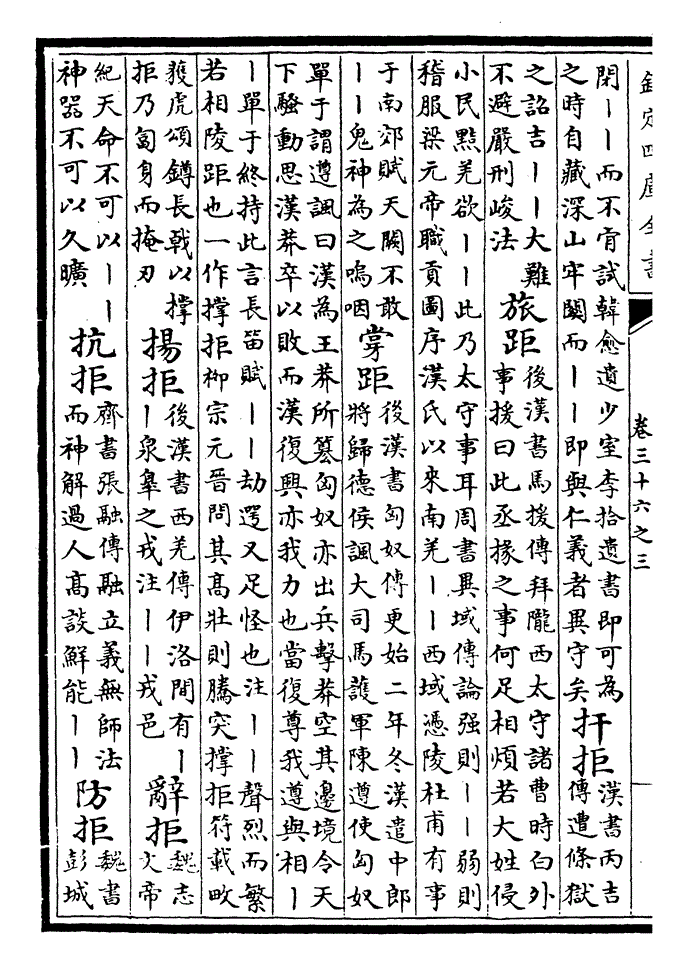 欽定四庫全書
卷三十六之三
閉丨丨而不肯試韓愈遺少室李拾遺書即可為
之時自藏深山牢關而丨丨即與仁義者異守矣
扞拒
漢書丙吉
傳遭條獄
之詔吉丨丨大難
不避嚴刑峻法
旅距
後漢書馬援傳拜隴西太守諸曹時白外
事援曰此丞掾之事何足相煩若大姓侵
小民黠羌欲丨丨此乃太守事耳周書異域傳論强則丨丨弱則
稽服梁元帝職貢圖序漢氏以來南羌丨丨西域憑陵杜甫有事
于南郊賦天闕不敢
丨丨鬼神為之嗚咽
牚距
後漢書匈奴傳更始二年冬漢遣中郎
將歸德侯諷大司馬護軍陳遵使匈奴
單于謂遵諷曰漢為王莽所簒匈奴亦出兵擊莽空其邊境令天
下騷動思漢莽卒以敗而漢復興亦我力也當復尊我遵與相丨
丨單于終持此言長笛賦丨丨劫遌又足怪也注丨丨聲烈而繁
若相陵距也一作撑拒柳宗元晉問其髙壯則騰突撑拒符載畋
獲虎頌鐏長戟以撑
拒乃匐身而掩刃
揚拒
後漢書西羌傳伊洛間有丨
丨泉臯之戎注丨丨戎邑
辭拒
魏志
文帝
紀天命不可以丨丨
神器不可以久曠
抗拒
齊書張融傳融立義無師法
而神解過人髙談鮮能丨丨
防拒
魏書
彭城